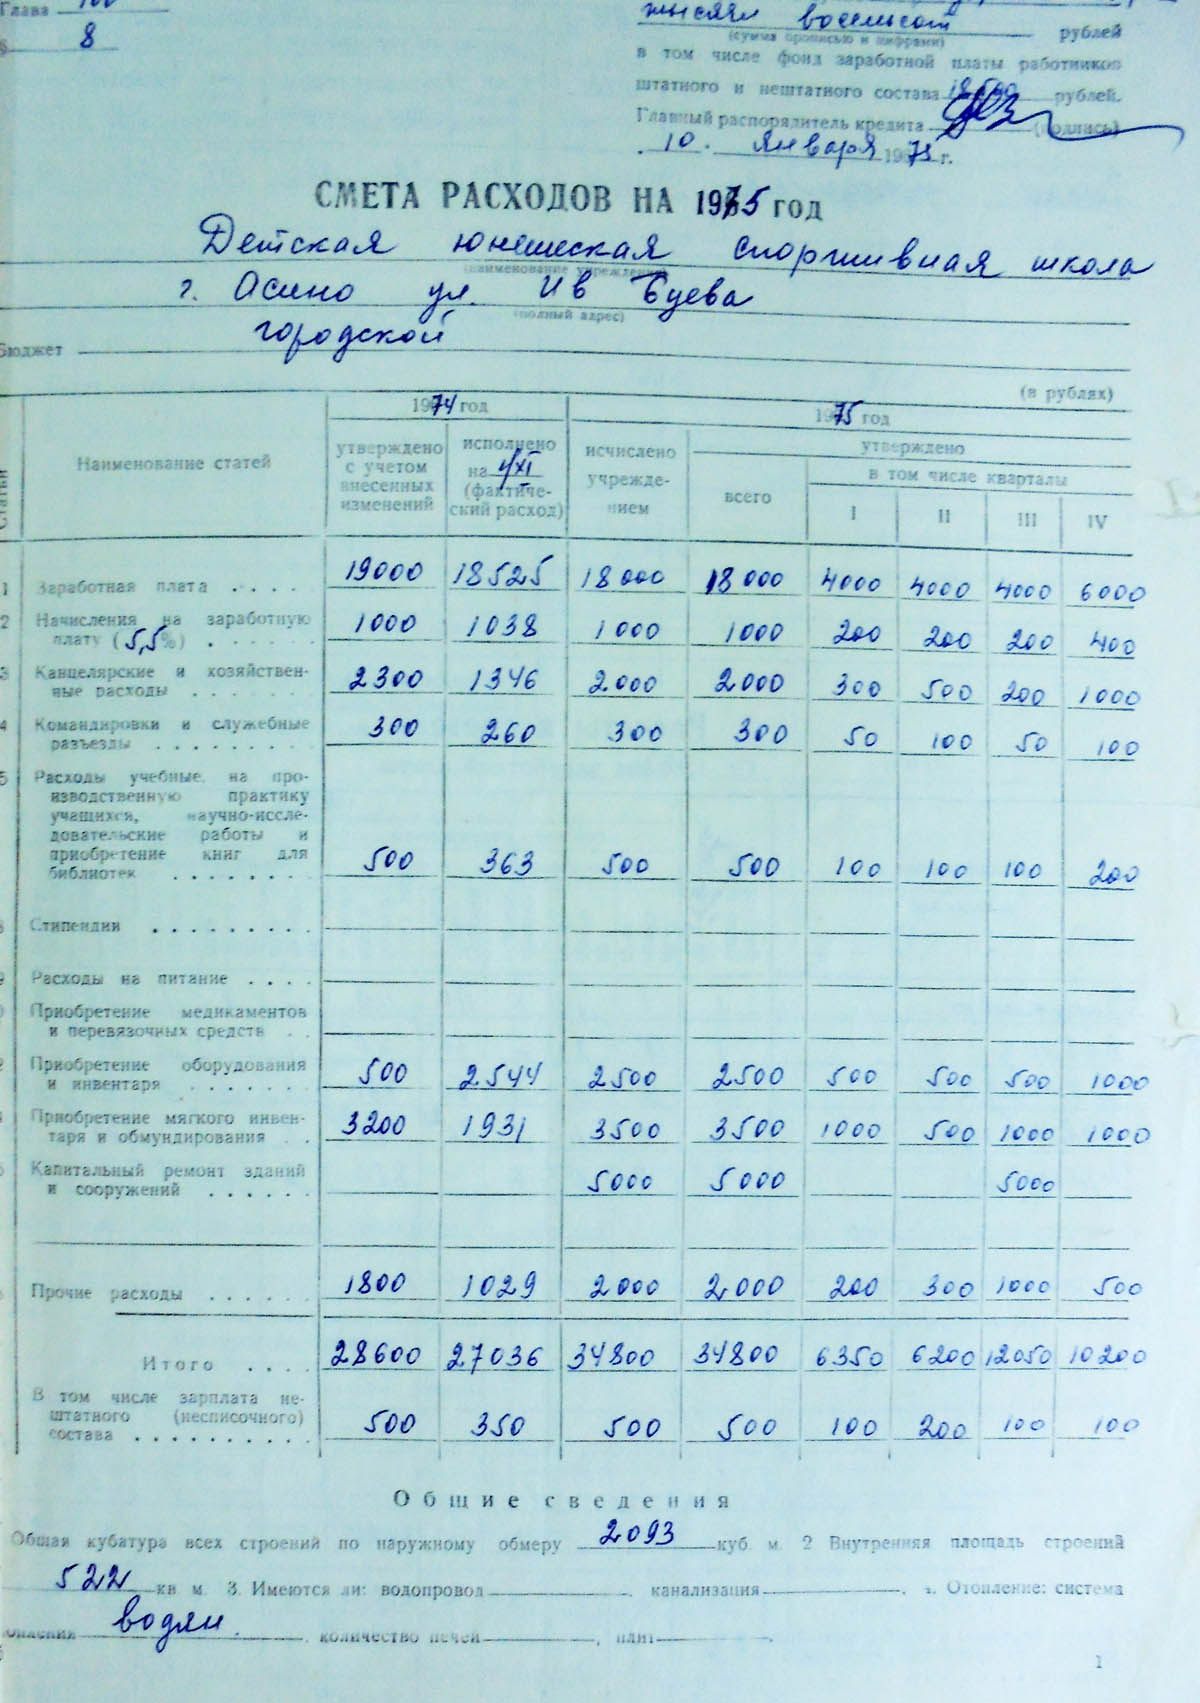 Глава 100
§ 8
тысячи восемьсот рублей
(сумма прописью и цифрами)
в том числе фонд заработной платы работников
штатного и нештатного состава 18500 рублей.
Главный распорядитель кредита (подпись)
10. января 1975 г.
СМЕТА РАСХОДОВ НА 1975 ГОД
Детская юнешеская спортивная школа
(наименование учреждения)
г. Асино ул. Ив Буева
(полный адрес)
Бюджет городской
(в рублях)
Статьи
Наименование статей
1974 год
1975 год
утверждено с учетом внесенных изменений
исполнено на 1/XI (фактический расход)
исчислено учреждением
утверждено
всего
в том числе кварталы
I II III IV
1 Заработная плата . . . . 19000 18525 18000 18000 4000 4000 4000 6000
2 Начисления на заработную
плату (5,5%) . . . . . . 1000 1038 1000 1000 200 200 200 400
3 Канцелярские и хозяйствен-
ные расходы . . . . . . 2300 1346 2000 2000 300 500 200 1000
4 Командировки и служебные
разъезды . . . . . . . . 300 260 300 300 50 100 50 100
5 Расходы учебные, на про-
изводственную практику
учащихся, научно-иссле-
довательские работы и
приобретение книг для
библиотек . . . . . . . . 500 363 500 500 100 100 100 200
Стипендии . . . . . . . . .
Расходы на питание . . . .
Приобретение медикаментов
и перевязочных средств . .
Приобретение оборудования
и инвентаря . . . . . . . 500 2544 2500 2500 500 500 500 1000
Приобретение мягкого инвен-
таря и обмундирования . . 3200 1931 3500 3500 1000 500 1000 1000
Капитальный ремонт зданий
и сооружений . . . . . . 5000 5000 5000
Прочие расходы . . . . . . 1800 1029 2000 2000 200 300 1000 500
Итого . . . . 28600 27036 34800 34800 6350 6200 12050 10200
В том числе зарплата не-
штатного (несписочного)
состава . . . . . . . . . . 500 350 500 500 100 200 100 100
Общие сведения
Общая кубатура всех строений по наружному обмеру 2093 куб. м. 2 Внутренняя площадь строений
522 кв. м. 3. Имеются ли: водопровод , канализация . 4. Отопление: система
водян. , количество печей , плит .
1